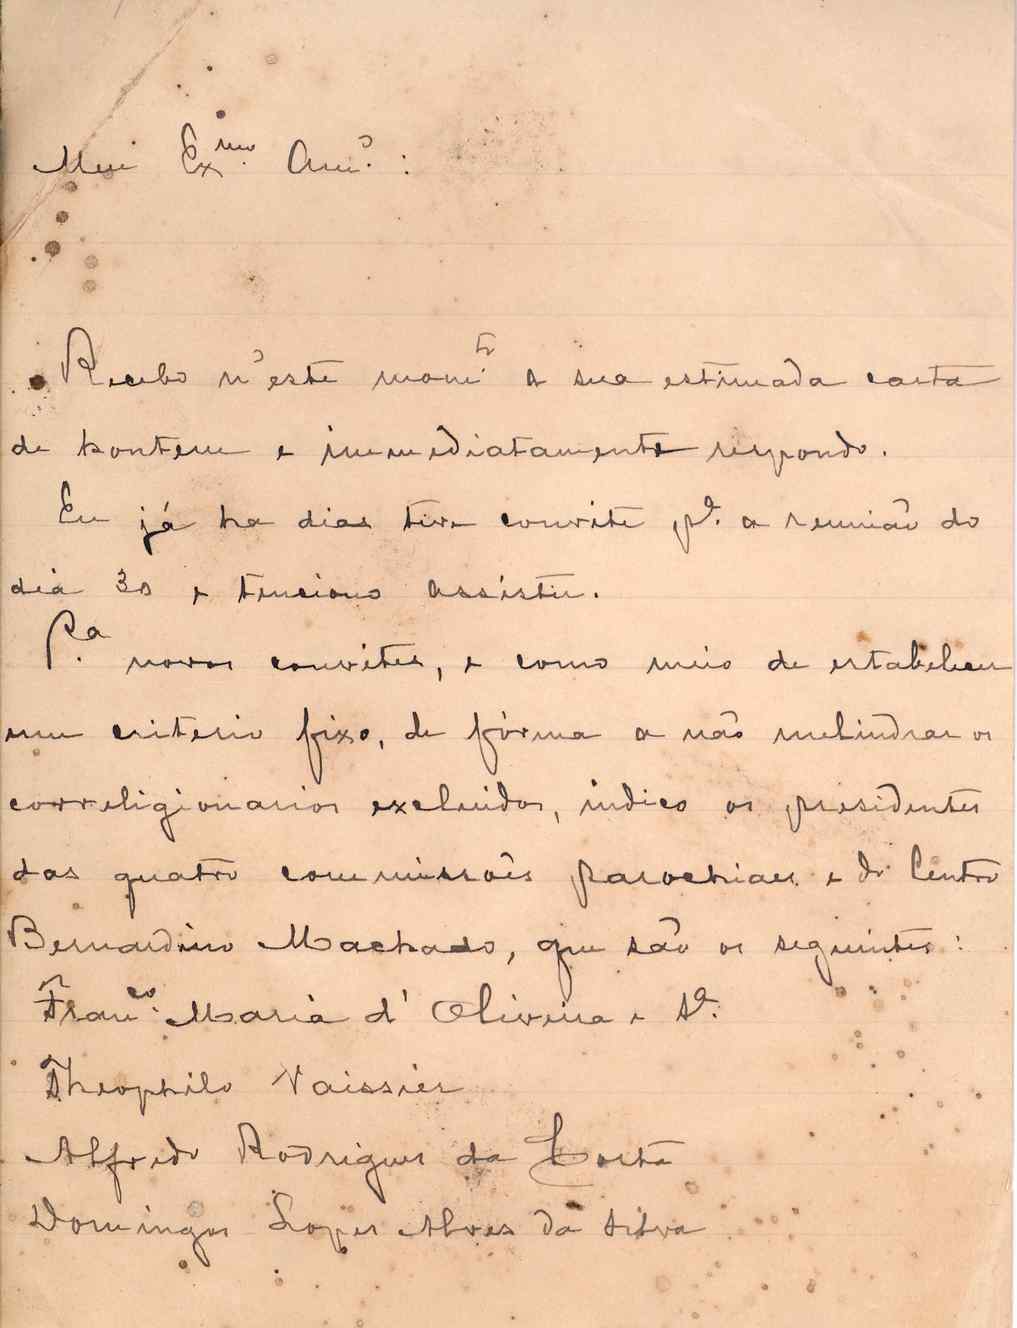 Meu Ex.mo Am.o :
Recebo n'este mom.to a sua estimada carta
de hontem e immediatamente respondo.
Eu já ha dias tive convite p.a a reunião do
dia 30 e tenciono assistir.
P.a novos convites, e como meio de estabelecer
um criterio fixo, de fórma a não melindrar os
correligionarios excluidos, indico os presidentes
das quatro commissões parochiaes e do Centro
Bernardino Machado, que são os seguintes :
Fran.co Maria d'Oliveira e S.a
Theophilo Vaissier
Alfredo Rodrigues da Costa
Domingos Lopes Alves da Silva